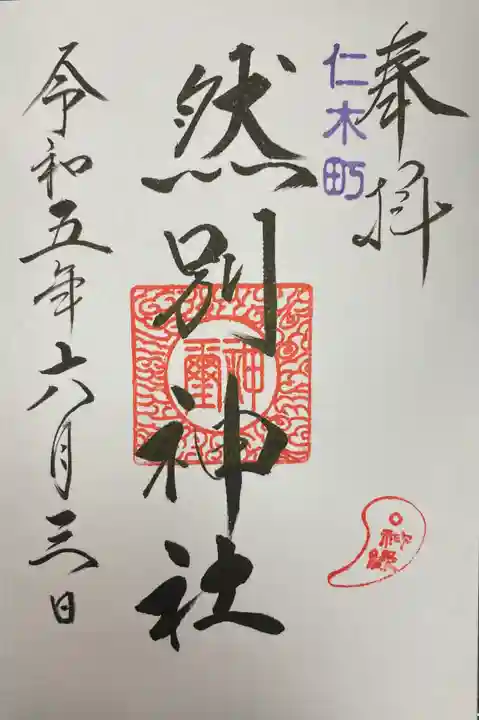 奉拝
仁木町
然別神社
神璽
令和五年六月三日